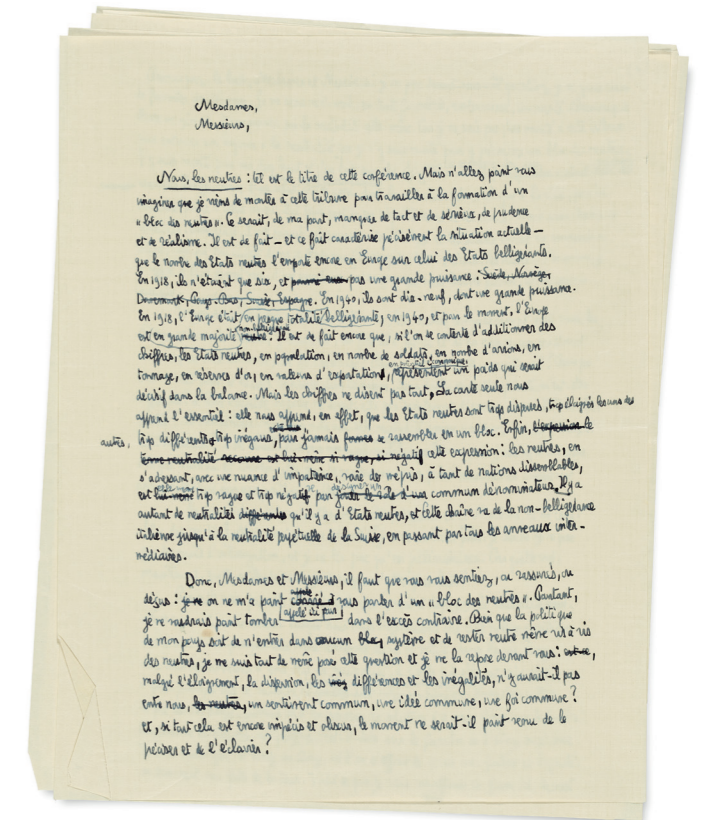 Mesdames,
Messieurs,
Nous, les neutres : tel est le titre de cette conférence. Mais n'allez point vous
imaginer que je viens de monter à cette tribune pour travailler à la formation d'un
« bloc des neutres ». Ce serait, de ma part, manquer de tact et de sérieux, de prudence
et de réalisme. Il est de fait – et ce fait caractérise précisément la situation actuelle –
que le nombre des Etats neutres l'emporte encore en Europe sur celui des Etats belligérants.
En 1918, ils n'étaient que six, et parmi eux pas une grande puissance : Suède, Norvège,
Danemark, Pays-Bas, Suisse, Espagne. En 1940, ils sont dix-neuf, dont une grande puissance.
En 1918, l'Europe était en presque totalité belligérante, en 1940, et pour le moment, l'Europe
est en grande majorité neutre. Il est de fait encore que, si l'on se contente d'additionner des
chiffres, les Etats neutres, en population, en nombre de soldats, en nombre d'avions, en
en potentiel économique
tonnage, en réserves d'or, en valeurs d'exportations, représentent un poids qui serait
décisif dans la balance. Mais les chiffres ne disent pas tout. La carte seule nous
apprend l'essentiel : elle nous apprend, en effet, que les Etats neutres sont trop dispersés, trop éloignés les uns des
autres, trop différents, trop inégaux, pour jamais former se rassembler en un bloc. Enfin, l'expression le
terme neutralité recouvre est lui-même si vague, si négatif cette expression : les neutres, en
s'adressant, avec une nuance d'impatience, voire de mépris, à tant de nations dissemblables,
est lui-même trop vague et trop négatif pour jouer le rôle d'un commun dénominateur. Il y a
autant de neutralités différentes qu'il y a d'Etats neutres, et cette chaîne va de la non-belligérance
italienne jusqu'à la neutralité perpétuelle de la Suisse, en passant par tous les anneaux inter-
médiaires.
Donc, Mesdames et Messieurs, il faut que vous vous sentiez, ou rassurés, ou
appelé
déçus : je ne on ne m'a point à vous parler d'un « bloc des neutres ». Pourtant,
appelé ici pour
je ne voudrais point tomber dans l'excès contraire. Bien que la politique
de mon pays soit de n'entrer dans aucun bloc système et de rester neutre même vis à vis
des neutres, je me suis tout de même posé cette question et je me la repose devant vous : est-ce,
malgré l'éloignement, la dispersion, les inég différences et les inégalités, n'y aurait-il pas
entre nous, les neutres, un sentiment commun, une idée commune, une foi commune ?
et, si tout cela est encore imprécis et obscur, le moment ne serait-il point venu de le
préciser et de l'éclaircir ?